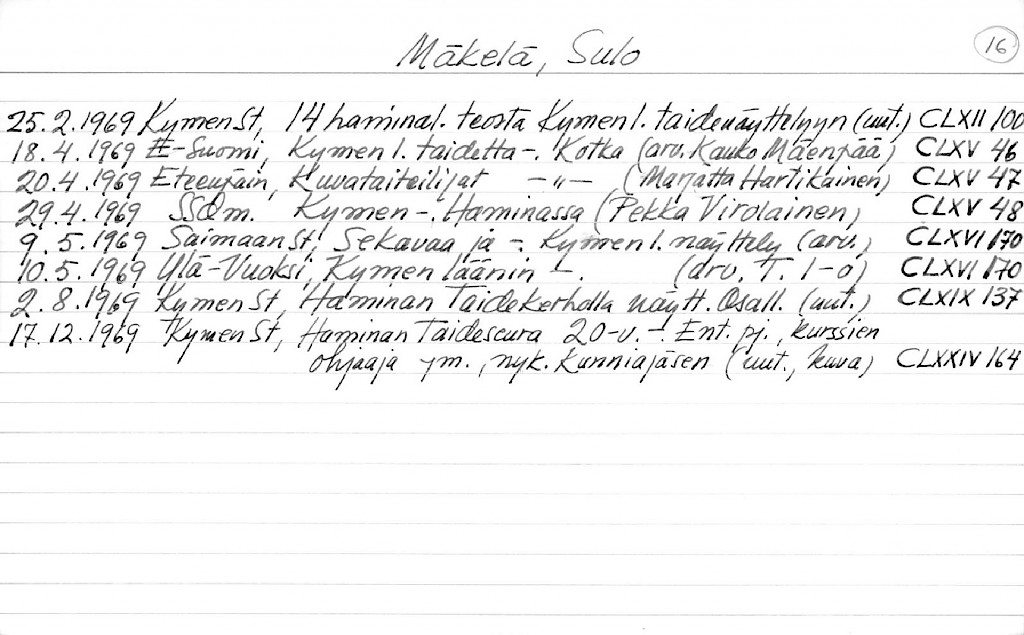 Mäkelä, Sulo
16
25.2.1969 KymenSt, 14 haminal. teosta Kymen l. taidenäyttelyyn (uut.) CLXII/100
18.4.1969 E-Suomi, Kymen l. taidetta -. Kotka (arv. Kauko Mäenpää) CLXV 46
20.4.1969 Eteenpäin, Kuvataiteilijat -"- (Marjatta Hartikainen) CLXV 47
29.4.1969 SSOm. Kymen -, Haminassa (Pekka Virolainen) CLXV 48
9.5.1969 SaimaanSt, Sekavaa ja -. Kymen l. näyttely (arv.) CLXVI/170
10.5.1969 Ylä-Vuoksi, Kymen läänin -. (arv. T. I-o) CLXVI/170
2.8.1969 KymenSt, Haminan Taidekerholla näytt. Osall. (uut.) CLXIX 137
17.12.1969 KymenSt, Haminan Taideseura 20-v. -. Ent. pj., kurssien
ohjaaja ym., nyk. Kunniajäsen (uut., kuva) CLXXIV 164